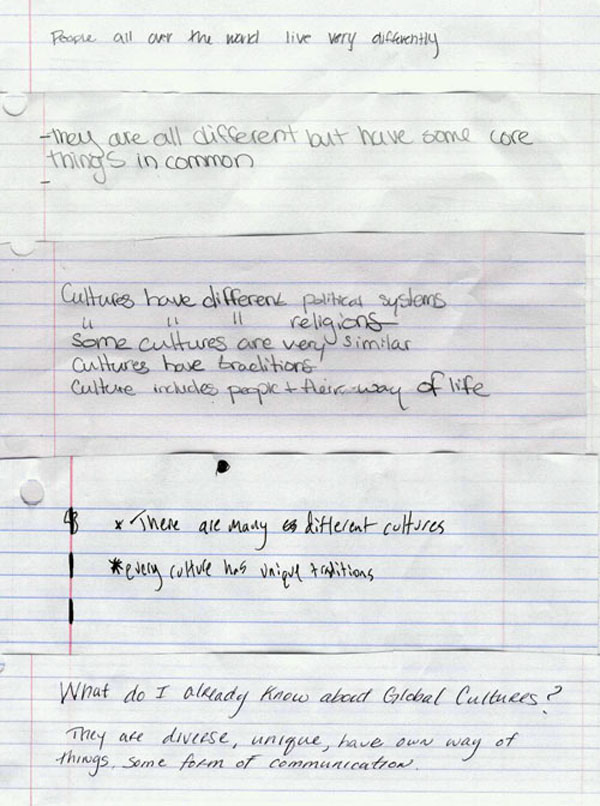 People all over the world live very differently
- They are all different but have some core
things in common
-
Cultures have different political systems
" " " religions
Some cultures are very similar
Cultures have traditions
Culture includes people + their way of life
* There are many different cultures
* every culture has unique traditions
What do I already know about Global Cultures?
They are diverse, unique, have own way of
things, some form of communication.